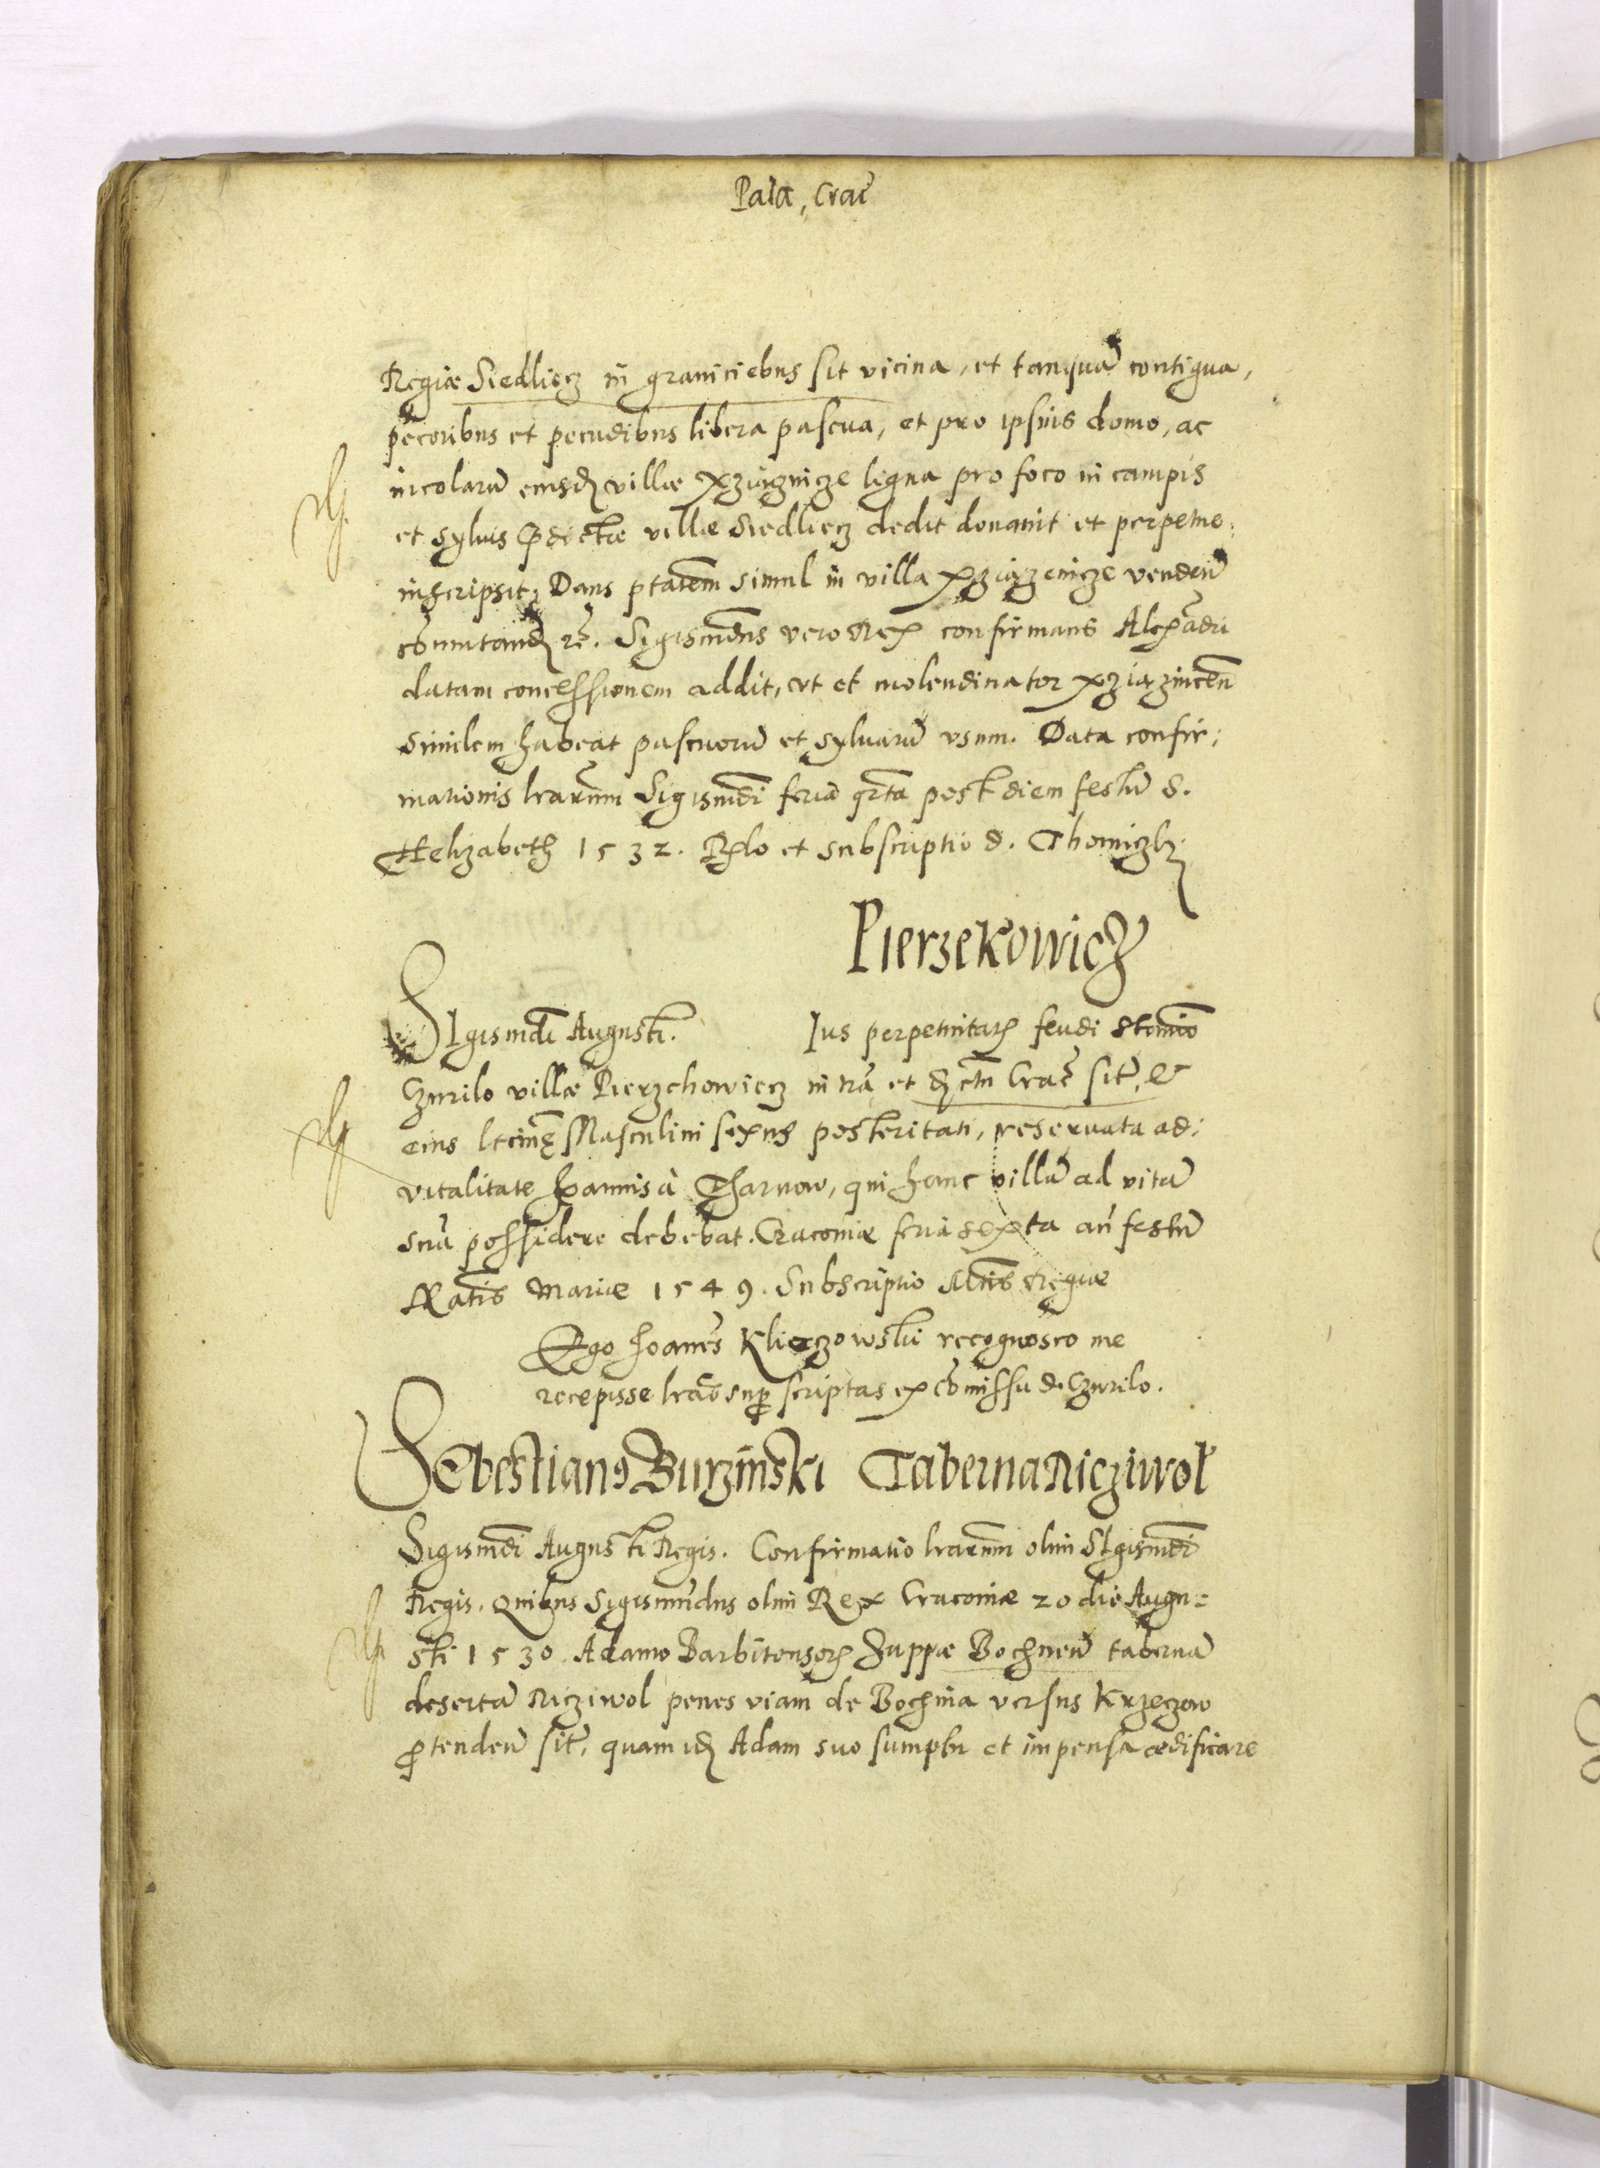 Pala, Crac̄
Regiæ Siedliecz in graniciebus sit vicina, et tanquā contigua,
pecoribus et pecudibus libera pascua, et pro ipsius domo, ac
incolarū eiusdꝫ villæ Xziąznicze ligna pro foco in campis
et syluis p̄dictæ villæ Siedliecz dedit donauit et perpetue
inscripsit, Dans ptātem simul in villa Xziązenicze vendēn̄
cōmutandꝫ &c. Sigismūdus vero Rex confirmans Alex̄adri
datam concessionem addit, vt et molendinator Xziązniceñ
Similem habeat pascuorū et syluarū vsum. Data confir:
mationis lrārum Sigismūdi feria qrta post diem festū S.
Helizabeth 1532. Rlo et subscriptio d. Thomiczkꝫ
Pierzekowicz
SIgismūdi Augusti. Ius perpetuitatꝫ feudi
Czurilo villæ Pierzchowiecz in trā et dꝫctu Crac̄ sit̄, &
eius ltīmę Masculini sexus posteritati, reseruata ad:
vitalitate Joannis à Tharnow, qui hanc villā ad vitā
suā possidere debebat. Cracouiæ feria sexta an̄ festū
Natīs Mariæ 1549. Subscriptio Mtīs Regiæ
Ego Joanēs Klieczowski recognosco me
recepisse lrās supꝑ scriptas ex cōmissu d. Czurilo.
SEbestian9 Burzinski Taberna Niecziwol
Sigismūdi Augusti Regis. Confirmatio lrārum olim SIgismūdi
Regis. Quibus Sigismūdus olim Rex Cracouiæ 20 die Augu:
sti 1530 Adamo Barbitonsorꝫ Zuppæ Bochneñ tabernā
desertā Nicziwol penes viam de Bochnia versus Krzeczow
ꝓtendeñ sit̄, quam idꝫ Adam suo sumptu et impensa ædificare